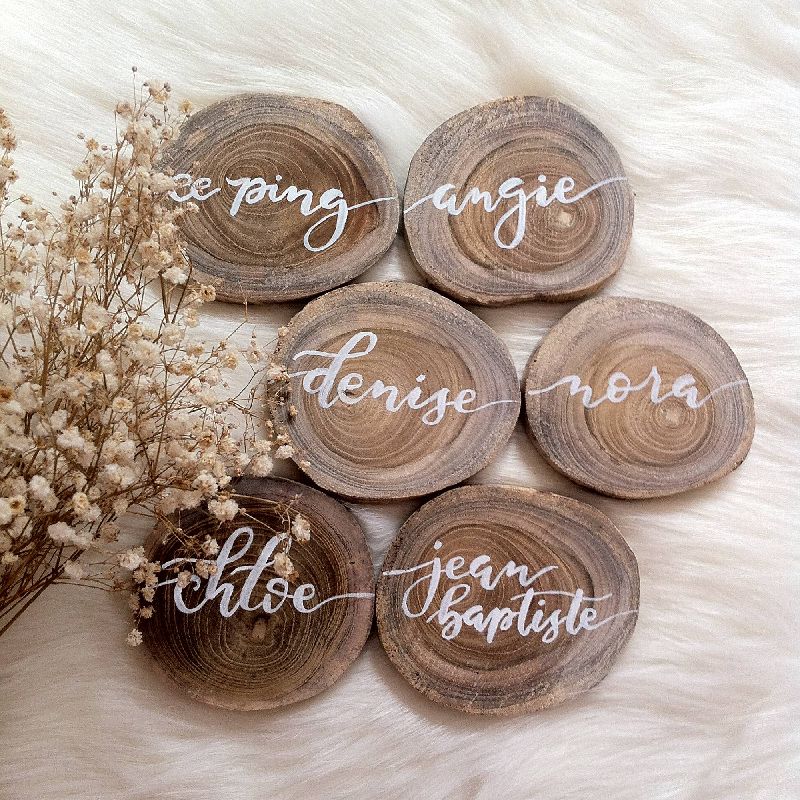 ping
angie
denise
nora
chloe
jean
baptiste